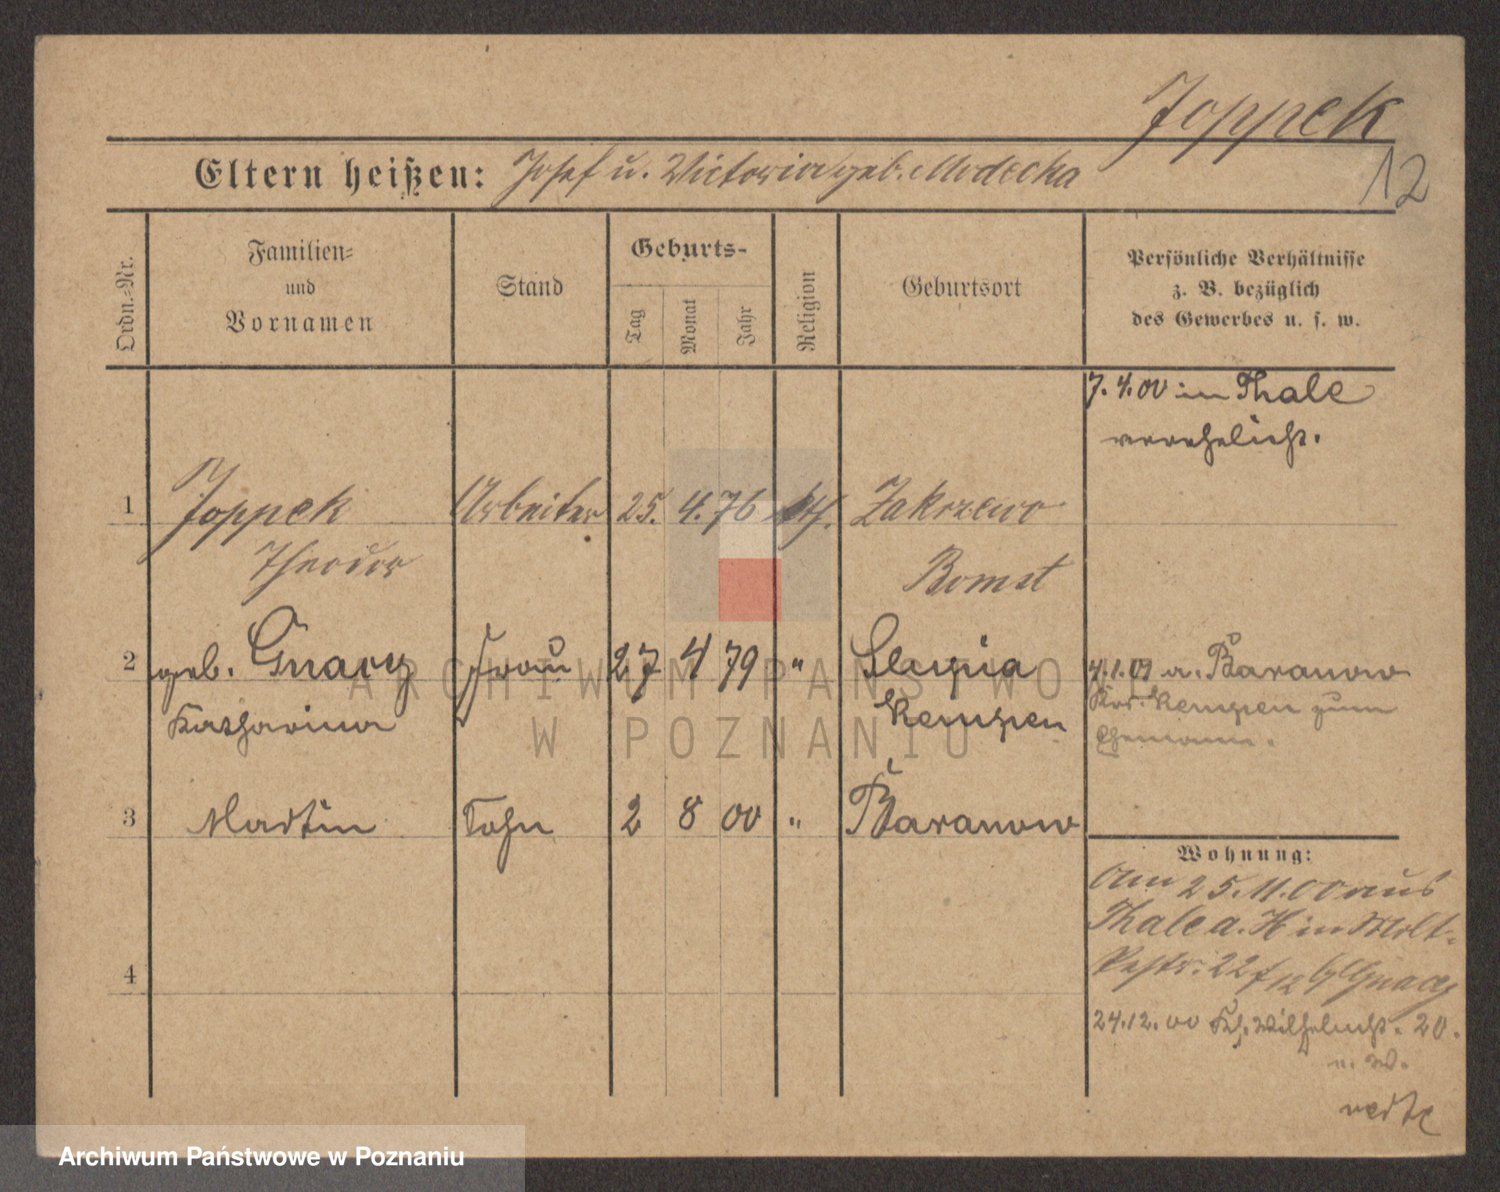 Joppek
12
Eltern heißen: Josef u. Victoria geb. Modecka
Ordn.-Nr.
Familien-
und
Vornamen
Stand
Geburts-
Tag
Monat
Jahr
Religion
Geburtsort
Persönliche Verhältnisse
z. B. bezüglich
des Gewerbes u. s. w.
7. 4. 00 in Thale
verehelicht.
1 Joppek Arbeiter 25. 4. 76 kth. Zakrzewo
Theodor Bomst
2 geb. Gnacy Frau 27 4 79 " Slupia
Katharina Kempen
4.1.01 a. Baranow
Krs. Kempen zum
Ehemann.
3 Martin Sohn 2 8 00 " Baranow
Wohnung:
Am 25.11.00 aus
Thale a. H in Molt-
kestr. 22 b/ Gnacy
24.12.00 Wilhelmst. 20.
n. W.
4
ARCHIWUM PAŃSTWOWE
W POZNANIU
Archiwum Państwowe w Poznaniu